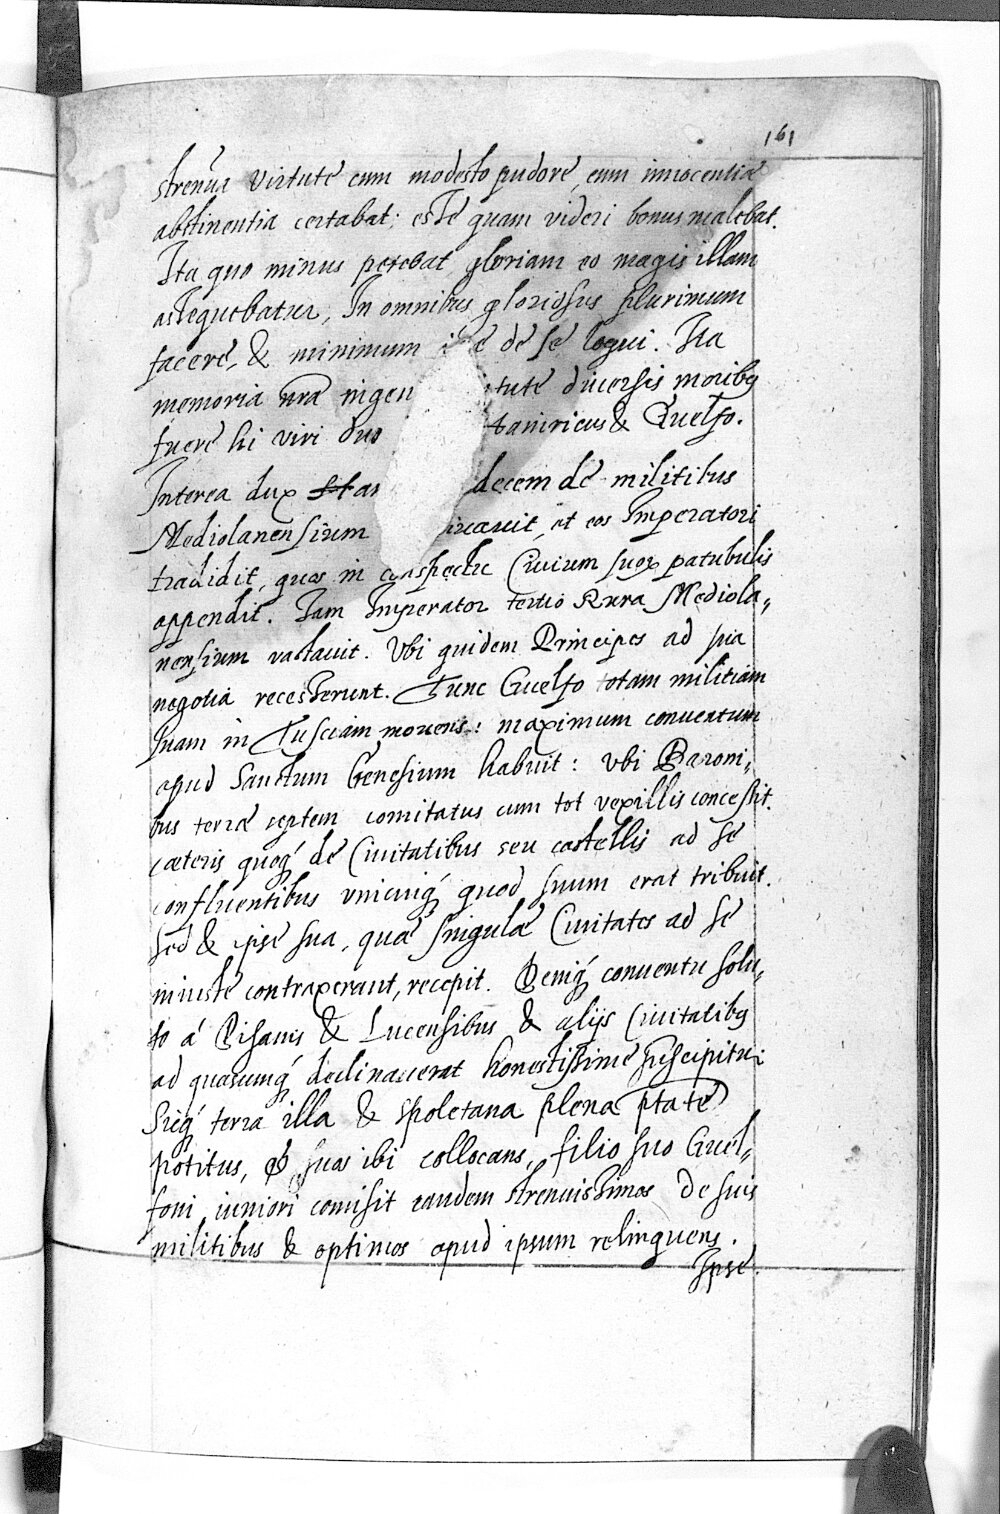 161
strenua virtute cum modesto pudore, cum innocentia
abstinentia certabat: esse quam videri bonus malebat.
Ita quo minus petebat gloriam eo magis illam
assequebatur, In omnibus gloriosus plurimum
facere, & minimum de se loqui. Ita
memoria nrã ingen tute diversis moribq
fuere hi viri duo & Guelfo.
Interea dux decem de militibus
Mediolanensium ut eos Imperatori
tradidit, quos in conspectu Civium suoꝝ patubulis
appendit. Iam Imperator tertio Rura Mediola„
nensium vastavit. Vbi quidem Principes ad sua
negotia recesserunt. Tunc Guelfo totam militiam
suam in Tusciam mouens: maximum conuentum
apud Sanctum Genesium habuit: Vbi Baroni„
bus terræ septem comitatus cum tot vexillis concessit.
cæteris quoq́ de Ciuitatibus seu castellis ad se
confluentibus vnicuiq́ quod suum erat tribuit.
sed & ipse sua, quæ singulæ Ciuitates ad se
iniuste contraxerant, recepit. Deniq́ conuentu solu„
to á Pisanis & Lucensibus & alijs Ciuitatibq
ad quascumq́ declinauerat honestissime suscipitur
Sicq́ terra illa & spoletana plena ptãte
potitus, & suos ibi collocans, filio suo Guel„
foni iuniori comisit eandem strenuissimos de suis
militibus & optimos apud ipsum relinquens.
Ipse.